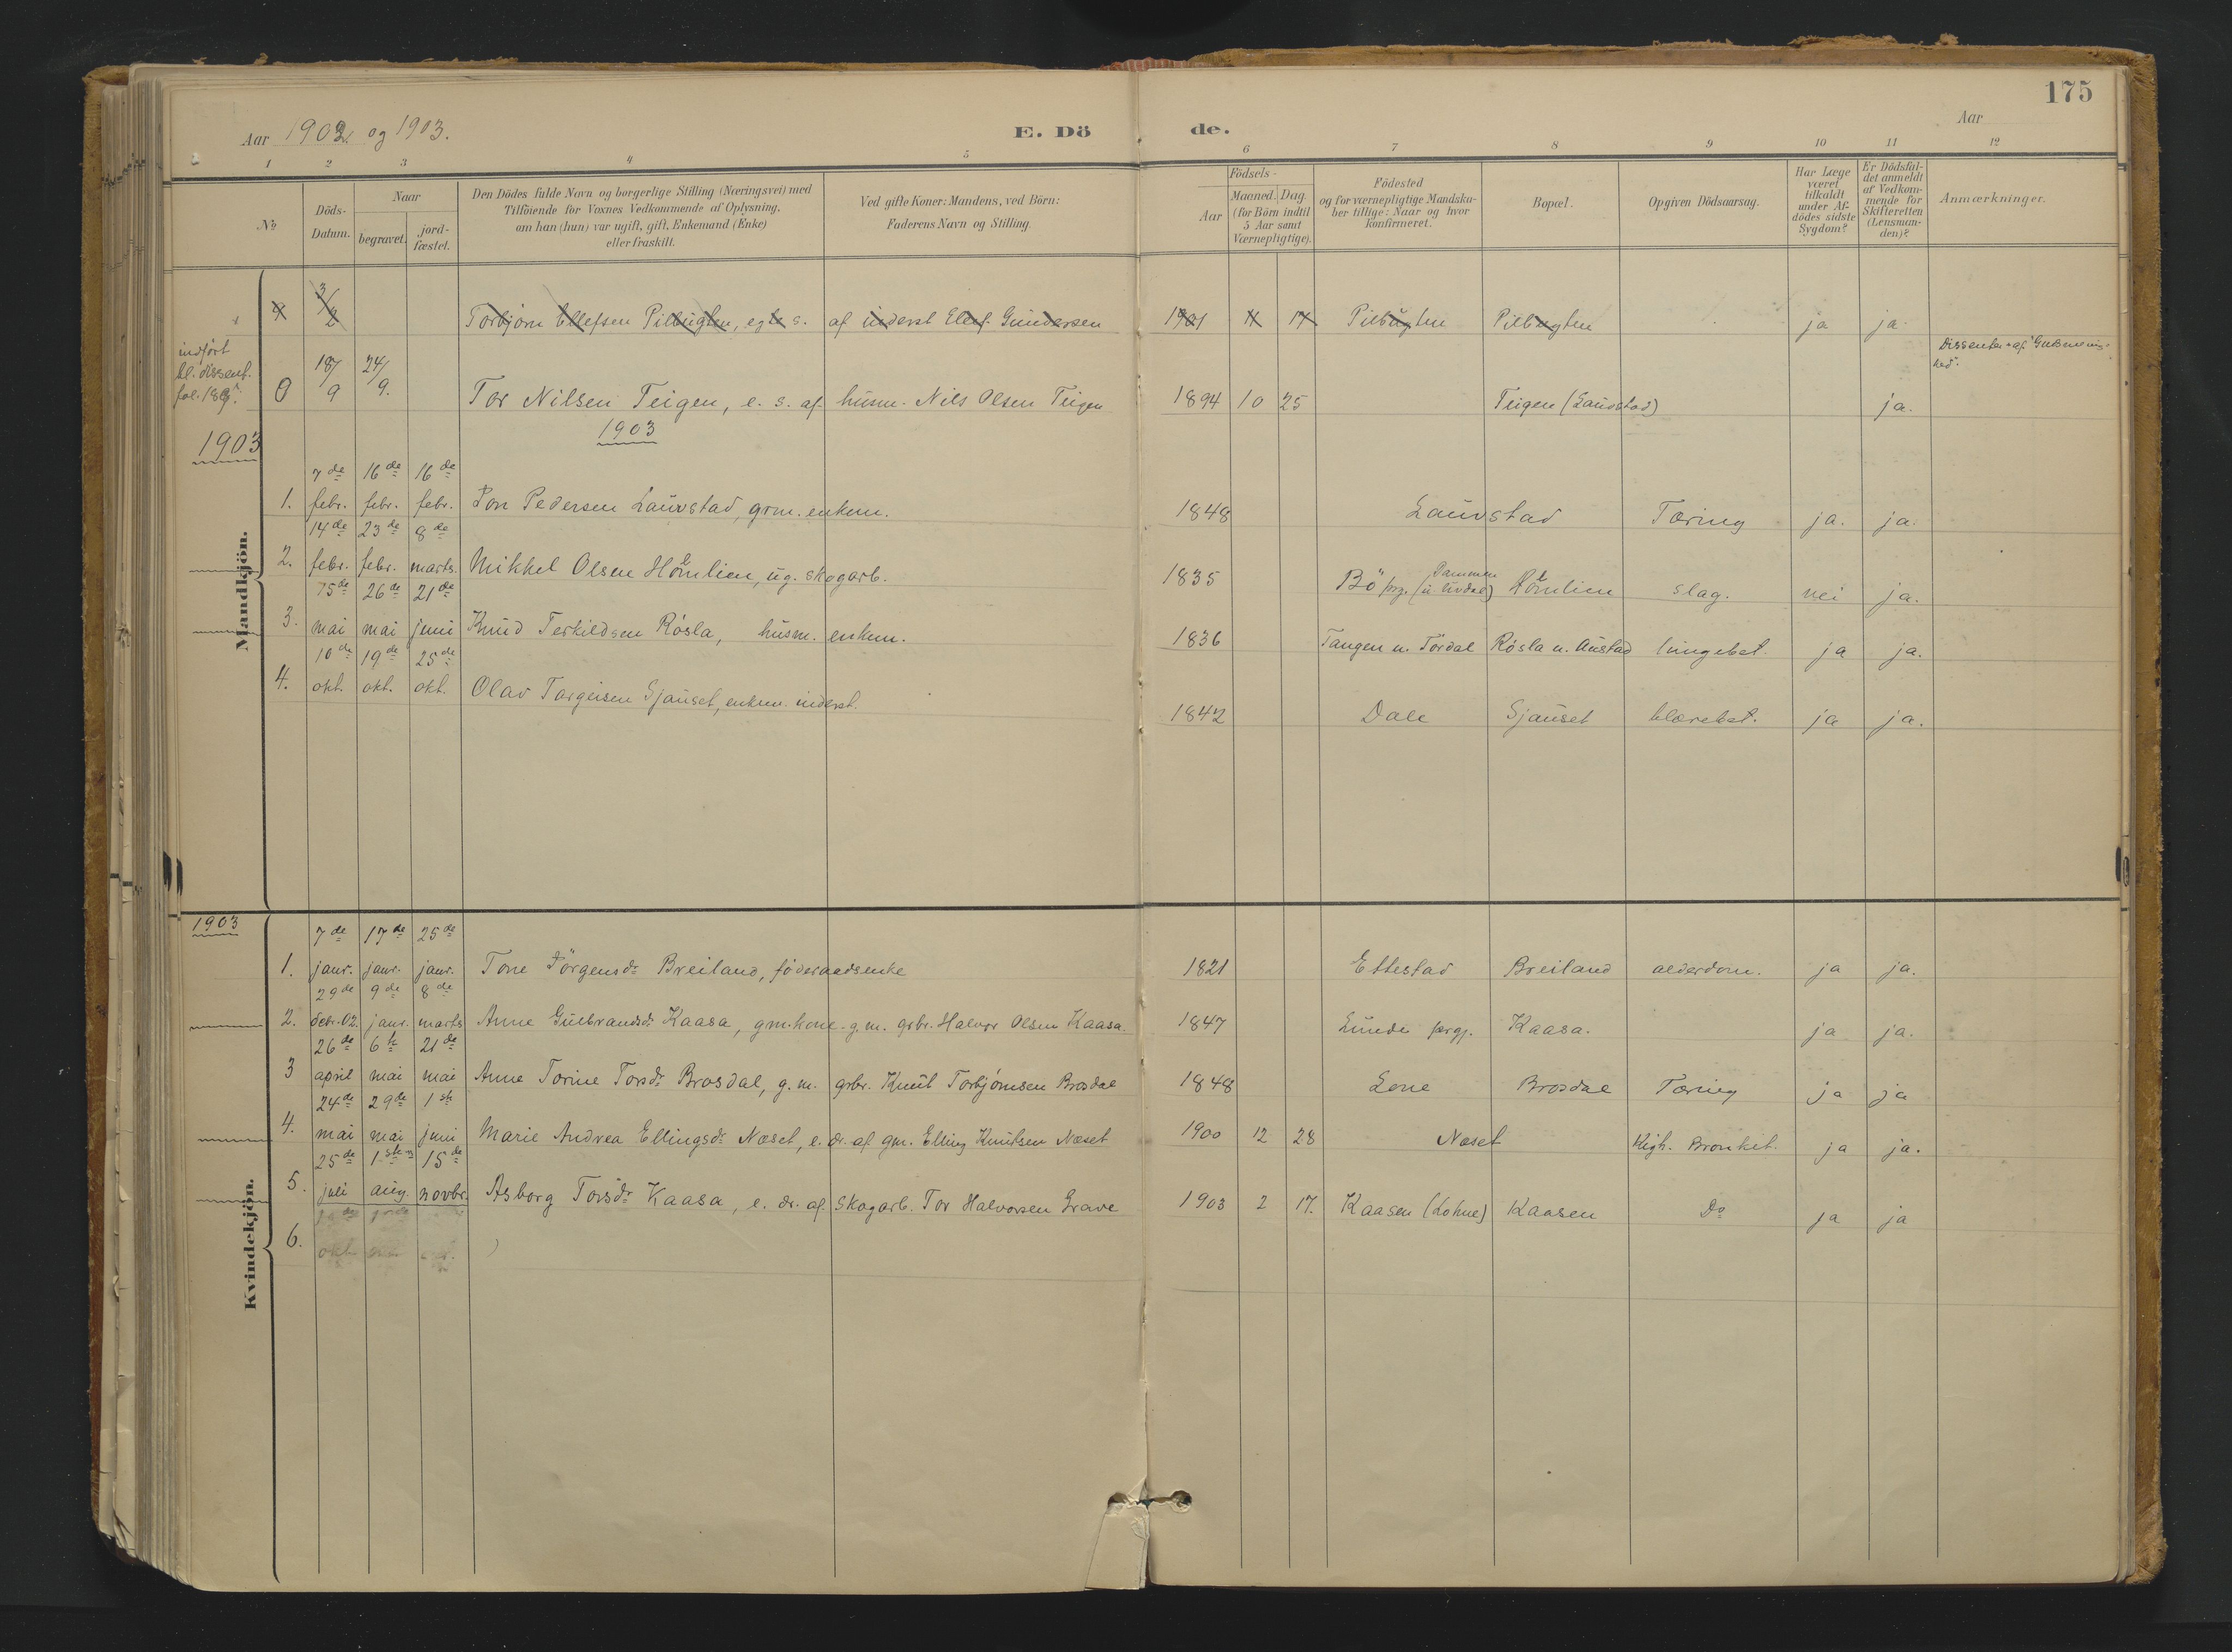 175
Aar 1902 og 1903.
E. Döde.
Aar
1 2 3 4 5 6 7 8 9 10 11 12
No
Döds-Datum.
Naar
begravet.
jord-fæstet.
Den Dödes fulde Navn og borgerlige Stilling (Næringsvei) med
Tilföiende for Voxnes Vedkommende af Oplysning,
om han (hun) var ugift, gift, Enkemand (Enke)
eller fraskilt.
Ved gifte Koner: Mandens, ved Börn:
Faderens Navn og Stilling.
Födsels-
Aar
Maaned. Dag.
(for Börn indtil
5 Aar samt
Værnepligtige).
Födested
og for værnepligtige Mandska-
ber tillige: Naar og hvor
konfirmeret.
Bopæl.
Opgiven Dödsaarsag.
Har Læge
været
tilkaldt
under Af-
dödes sidste
Sygdom?
Er Dödsfal-
det anmeldt
af Vedkom-
mende for
Skifteretten
(Lensman-
den)?
Anmærkninger.
Mandkjön.
4 3/2 Torbjørn Ellefsen Pilbugten, egte s. af inderst Elef. Gundersen 1901 11 14 Pilbugten Pilbugten ja ja.
indført
bl. dissent.
fol. 189.
0 18/9 24/9. Tor Nilsen Teigen, e. s. af husm. Nils Olsen Teigen 1894 10 25 Teigen (Lauvstad) ja. Dissenter af
1903
1903
1. 7de febr. 16de febr. 16de febr. Jon Pedersen Lauvstad, grm. enkem. 1848 Lauvstad Tæring ja. ja.
2. 14de febr. 23de febr. 8de marts. Mikkel Olsen Homlien, ug. skogarb. 1835 Bö prg. Homlien slag. nei ja.
3. 15de mai 26de mai 21de juni Knud Terkildsen Røsla, husm. enkem. 1836 Tangen u. Tørdal Røsla u. Austad lungebet. ja ja.
4. 10de okt. 19de okt. 25de okt. Olav Targeisen Gjauset, enkem. inderst. 1842 Dale Gjauset blærebet. ja ja.
Kvindekjön.
1903
1. 7de janr. 17de janr. 25de janr. Tone Jörgensdr Breiland, föderaadsenke 1821 Ettestad Breiland alderdom. ja ja.
2. 29de debr. 02. 9de janr. 8de marts Anne Gulbrandsdr Kaasa, gm. kone g. m. grbr. Halvor Olsen Kaasa. 1847 Lunde prgj. Kaasa. ja ja.
3 26de april 6te mai 21de mai Anne Torine Torsdr Brosdal, g. m. grbr. Knut Torbjørnsen Brosdal 1848 Lone Brosdal Tæring ja ja
4. 24de mai 29de mai 1ste juni Marie Andrea Ellingsdr Næset, e. dr. af gm. Elling Knutsen Næset 1900 12 28 Næset Kigh. Bronket. ja ja.
5. 25de juli 1ste aug. 15de novbr. Asborg Torsdr Kaasa, e. dr. af Skogarb. Tor Halvorsen Grave 1903 2 17. Kaasen (Lohne) Kaasen Do ja ja
6. okt.